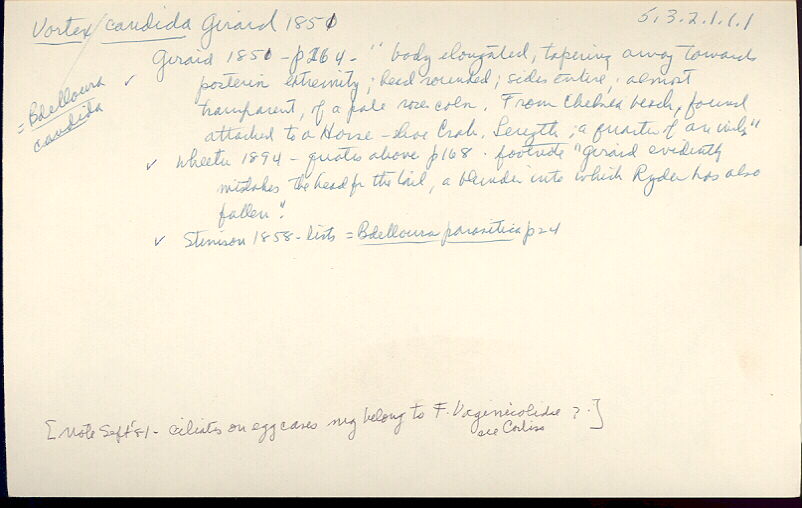 Vortex candida Girard 1850
5.3.2.1.1.1
= Bdelloura candida
Girard 1850 - p264 - "body elongated, tapering away towards
✓ posterior extremity; head rounded; sides entire; almost
transparent, of a pale rose color. From Chelsea beach, found
attached to a Horse-shoe Crab. Length; a quarter of an inch"
✓ Wheeler 1894 - quotes above p168. footnote "Girard evidently
mistakes the head for the tail, a blunder into which Ryder has also
fallen".
✓ Stimson 1858 - lists = Bdelloura parasitica p24
[note Sept '81 - ciliates on egg cases may belong to F. Vaginicolidae ?.]
see Corliss